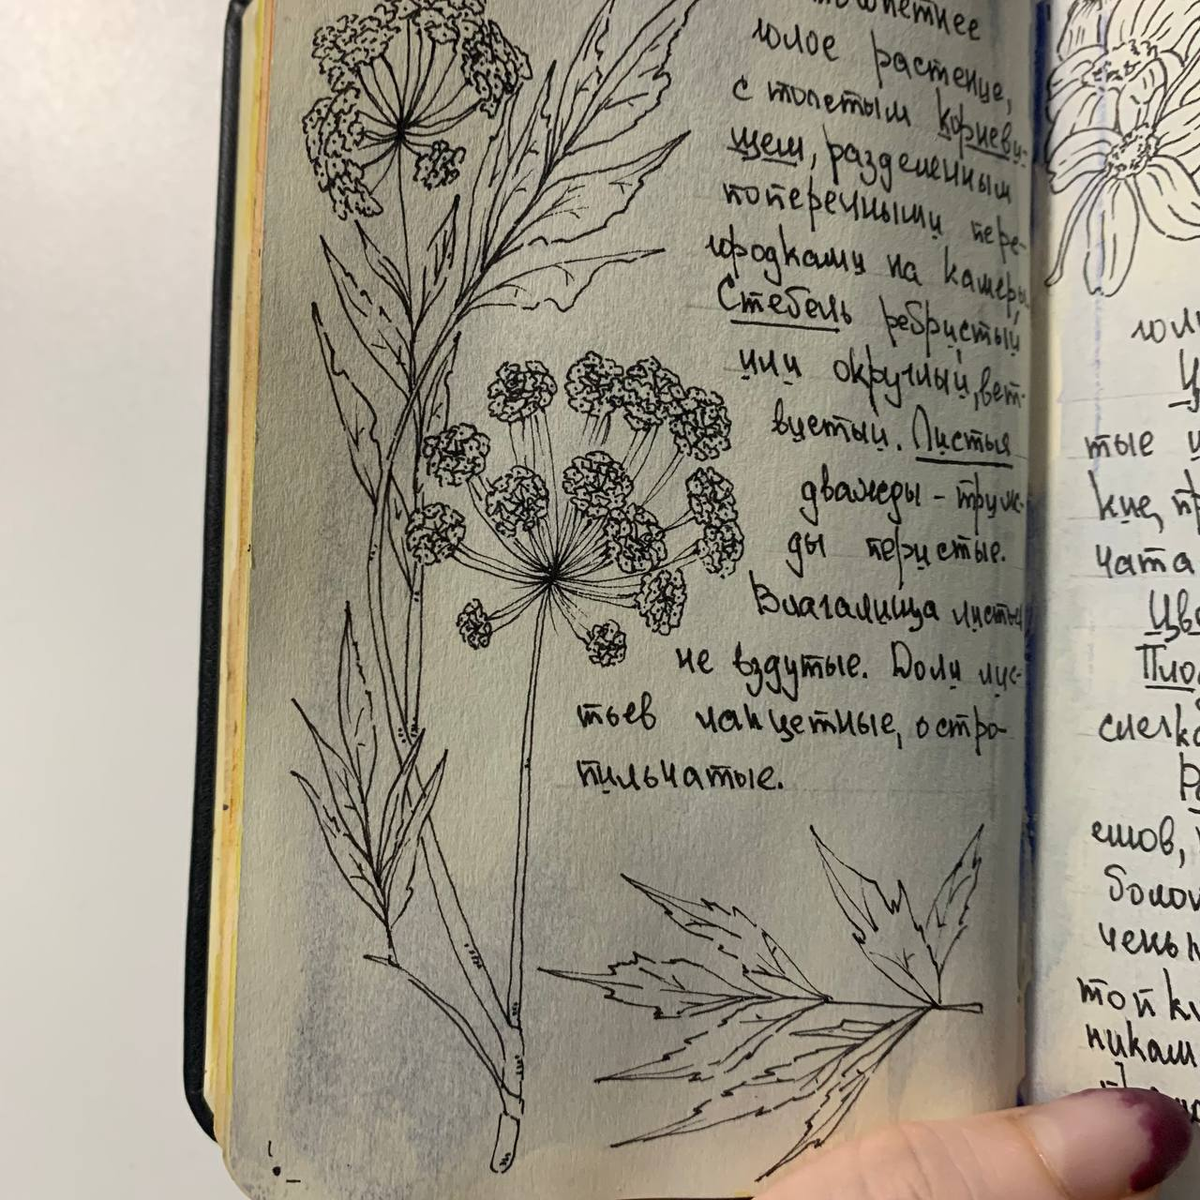 голое растение,
с толстым корневи-
щем, разделенным
поперечными пере-
городками на камеры,
Стебель ребристый
или округлый, вет-
вистый. Листья
дважды - триж-
ды перистые.
Влагалища листьев
не вздутые. Доли лис-
тьев ланцетные, остро-
пильчатые.
тые
кие,
чата
Цве
Пло
ешов,
болот
никам